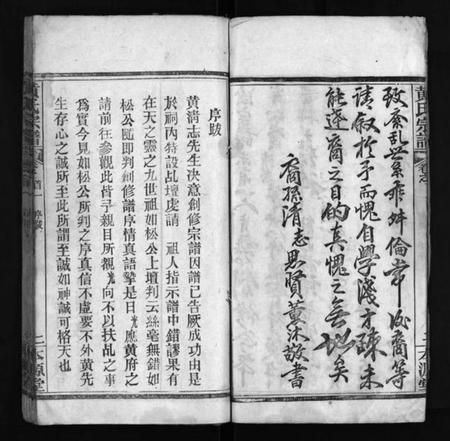 致紊乱世系乖舛倫常 後裔等
請叙於予而愧自學淺才疎未
能達裔之目的真愧之無地矣
裔孫清志思賢薰沐敬書
黃氏宗譜
二本源堂
序跋
黃清志先生决意創修宗譜因譜已告厥成功由是
於祠內特設乩壇虔請 祖人指示譜中錯謬果有
在天之靈之九世祖如松公上壇判云絲毫無錯如
松公隨即判創修譜序情真語摯是日光應黃府之
請前往參觀此皆予親目所覩光向不以扶乩之事
為實今見如松公所判之序真信不虛要不外黃先
生存心之誠所至此所謂至誠如神誠可格天也
黃氏宗譜
序跋
二本源堂